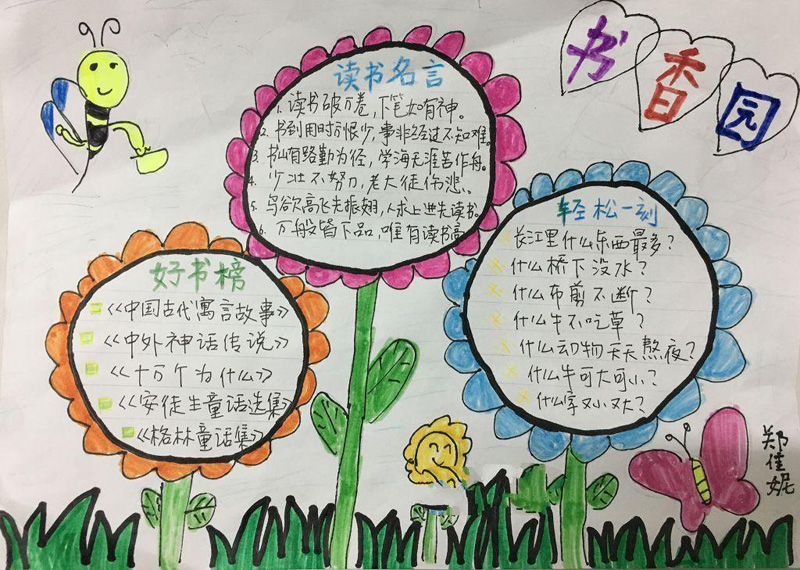 书香园
读书名言
1. 读书破万卷,下笔如有神。
2. 书到用时方恨少,事非经过不知难。
3. 书山有路勤为径,学海无涯苦作舟。
4. 少壮不努力,老大徒伤悲。
5. 鸟欲高飞先振翅,人求上进先读书。
6. 万般皆下品,唯有读书高
好书榜
《中国古代寓言故事》
《中外神话传说》
《十万个为什么》
《安徒生童话选集》
《格林童话集》
轻松一刻
长江里什么东西最多?
什么桥下没水?
什么布剪不断?
什么牛不吃草?
什么动物天天熬夜?
什么牛可大可小?
什么字又小又大?
郑佳妮